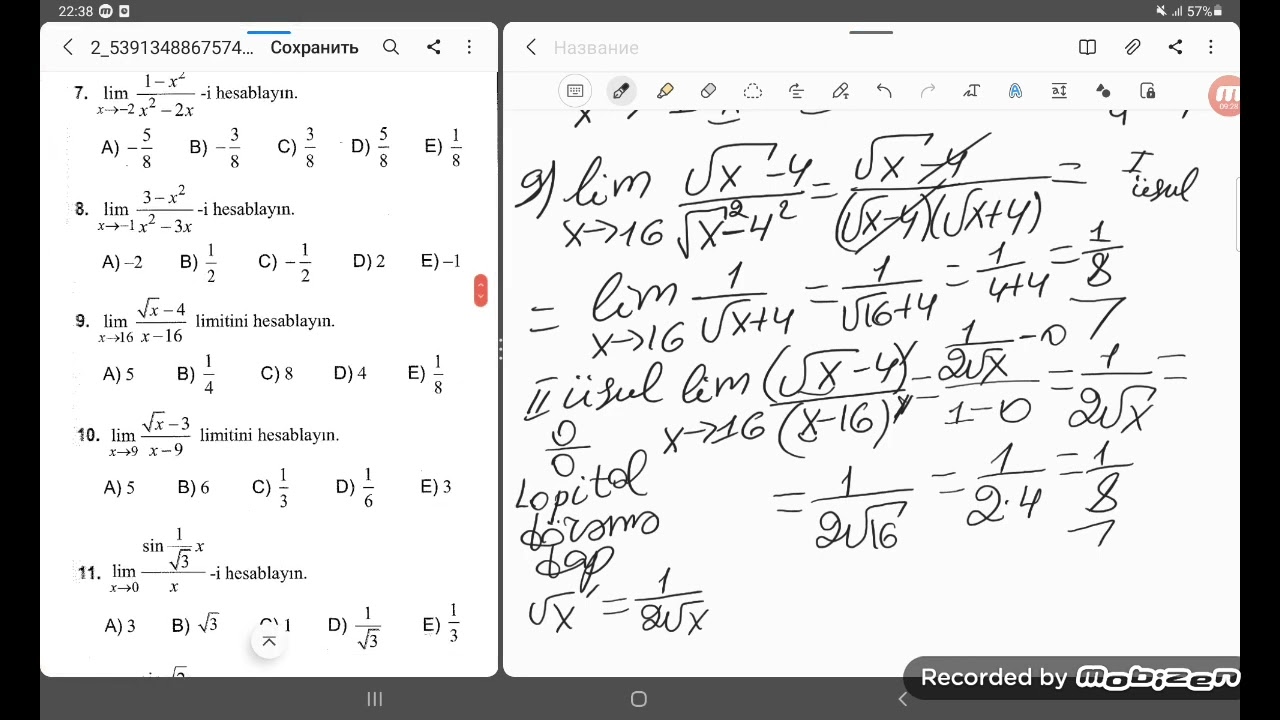 22:38
57%
2_539134886757­4...
Сохранить
7. lim x→−2 (1−x²)/(x²−2x) -i hesablayın.
A) −5/8 B) −3/8 C) 3/8 D) 5/8 E) 1/8
8. lim x→−1 (3−x²)/(x²−3x) -i hesablayın.
A) −2 B) 1/2 C) −1/2 D) 2 E) −1
9. lim x→16 (√x−4)/(x−16) limitini hesablayın.
A) 5 B) 1/4 C) 8 D) 4 E) 1/8
10. lim x→9 (√x−3)/(x−9) limitini hesablayın.
A) 5 B) 6 C) 1/3 D) 1/6 E) 3
11. lim x→0 (sin 1/√3 x)/x -i hesablayın.
A) 3 B) √3 1 D) 1/√3 E) 1/3
Название
09:28
9) lim x→16 (√x−4)/(√x²−4²) = (√x−4)/((√x−4)(√x+4)) = I üsul
= lim x→16 1/(√x+4) = 1/(√16+4) = 1/(4+4) = 1/8
II üsul lim x→16 (√x−4)'/(x−16)' = (1/(2√x)−0)/(1−0) = 1/(2√x) =
0/0
Lopital
törəmə
= 1/(2√16) = 1/(2·4) = 1/8
√x' = 1/(2√x)
Recorded by mobizen